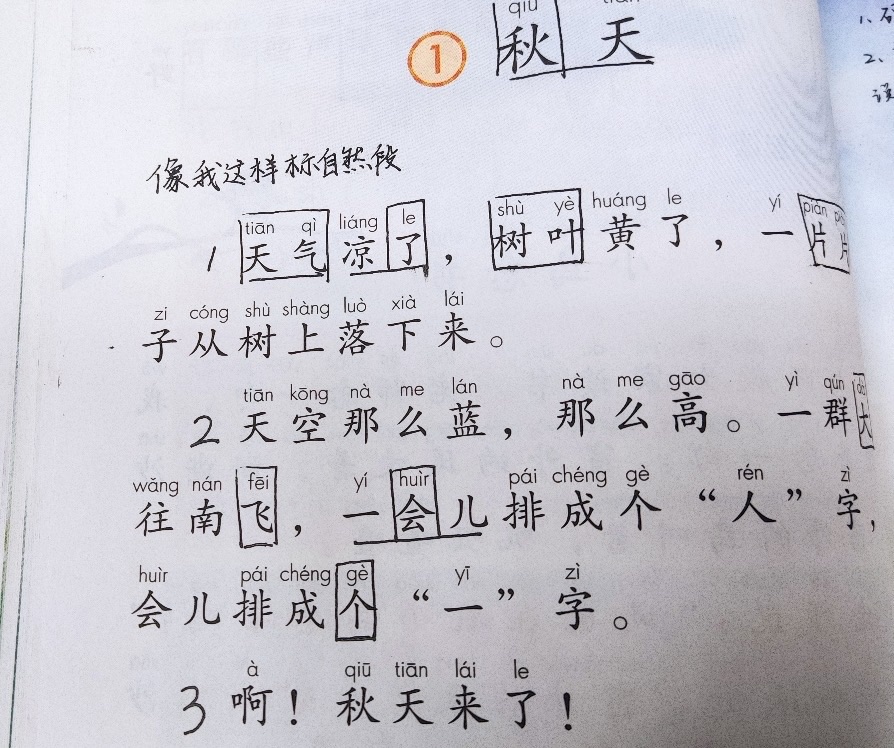 qiū tiān
1 秋天
像我这样标自然段
tiān qì liáng le shù yè huáng le yí piàn
1 天气凉了，树叶黄了，一片片
zi cóng shù shàng luò xià lái
子从树上落下来。
tiān kōng nà me lán nà me gāo yì qún dà
2 天空那么蓝，那么高。一群大
wǎng nán fēi yí huìr pái chéng gè rén zì
往南飞，一会儿排成个“人”字，
huìr pái chéng gè yī zì
会儿排成个“一”字。
à qiū tiān lái le
3 啊！秋天来了！
1、
2、